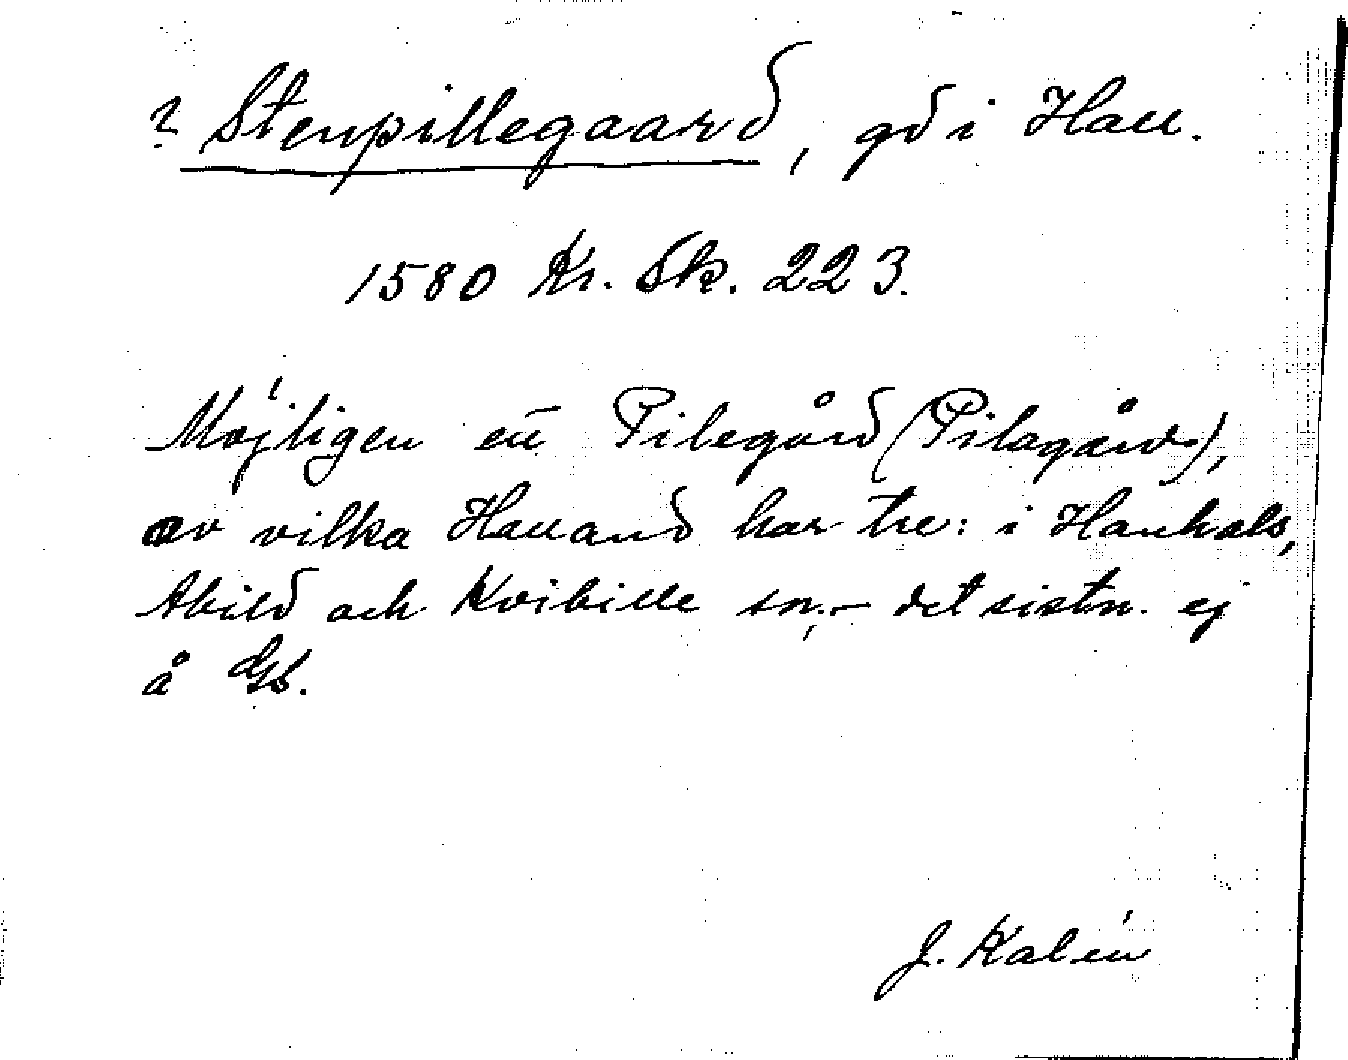 ? Stenpillegaard, gd i Hall.
1580 Kr. Sk. 223.
Möjligen en Pilegård (Pilagård),
av vilka Halland har tre: i Hanhals,
Abild och Kvibille sn,- det sistn. ej
å Gs.
J. Kalén